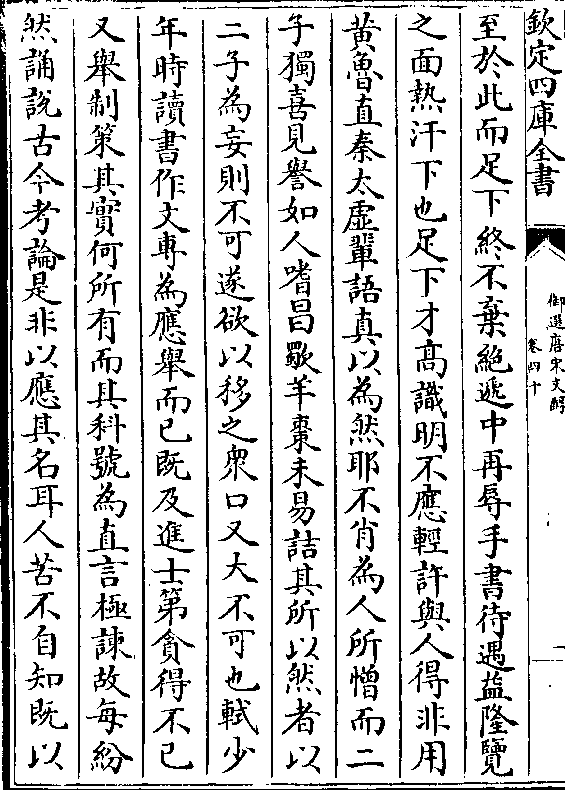 欽定四庫全書
御選唐宋文醇
卷四十
二
至於此而足下終不棄絶遞中再辱手書待遇益隆覽
之面熱汗下也足下才髙識明不應輕許與人得非用
黄魯直秦太虚輩語真以為然耶不肖為人所憎而二
子獨喜見譽如人嗜昌歜羊棗未易詰其所以然者以
二子為妄則不可遂欲以移之衆口又大不可也軾少
年時讀書作文專為應舉而已既及進士第貪得不已
又舉制策其實何所有而其科號為直言極諫故每紛
然誦說古今考論是非以應其名耳人苦不自知既以